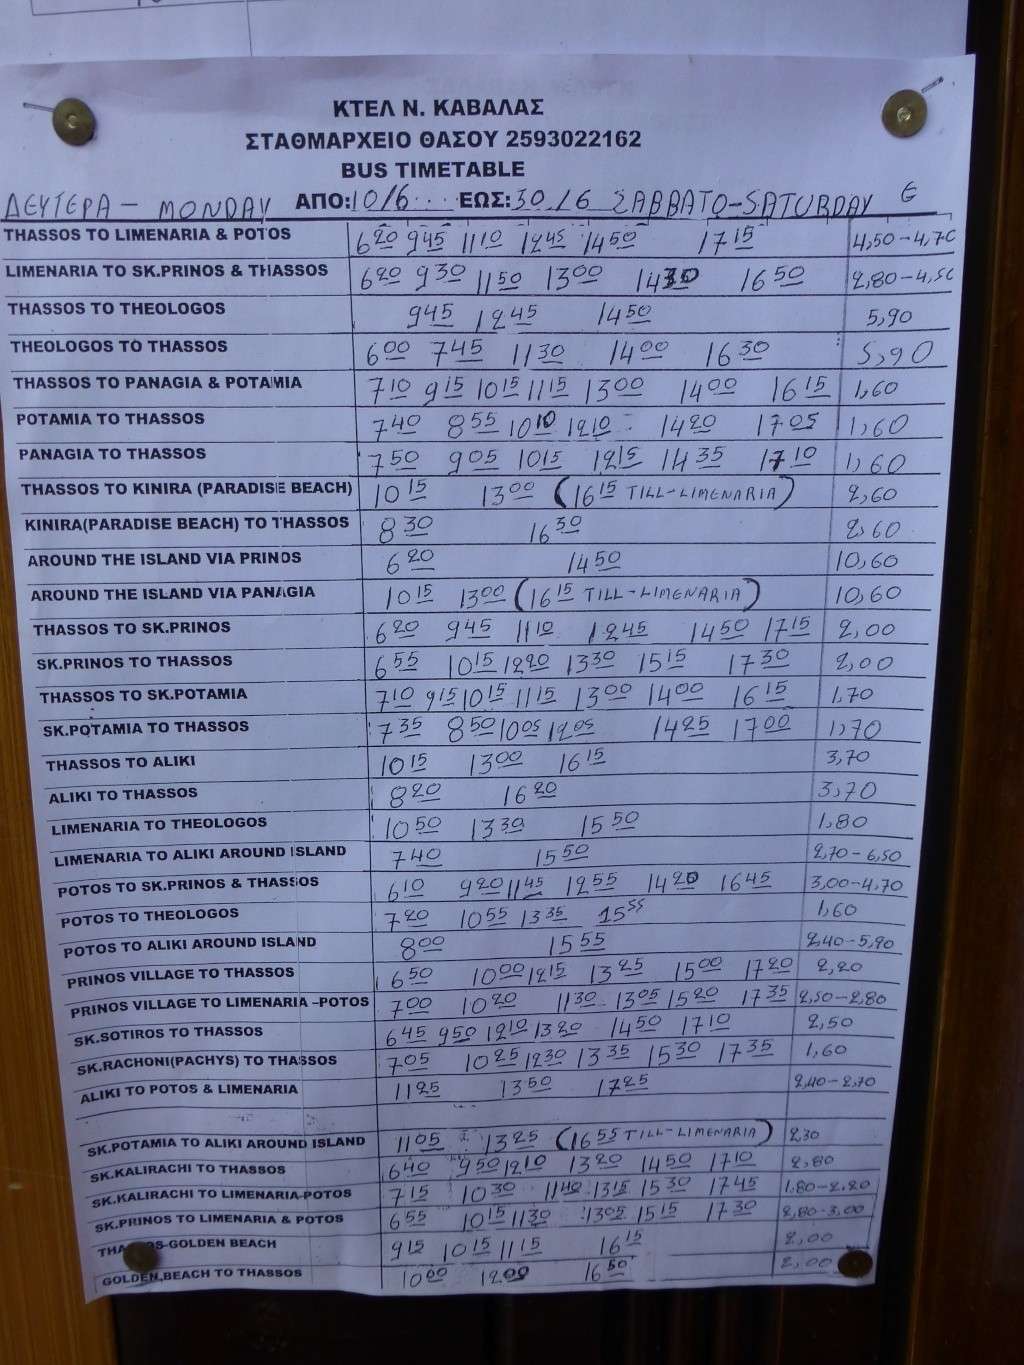 ΚΤΕΛ Ν. ΚΑΒΑΛΑΣ
ΣΤΑΘΜΑΡΧΕΙΟ ΘΑΣΟΥ 2593022162
BUS TIMETABLE
ΔΕΥΤΕΡΑ - MONDAY ΑΠΟ: 10/6 ΕΩΣ: 30/6 ΣΑΒΒΑΤΟ-SATURDAY €
THASSOS TO LIMENARIA & POTOS 6 20 9 45 11 10 12 45 14 50 17 15 4,50-4,70
LIMENARIA TO SK.PRINOS & THASSOS 6 20 9 30 11 50 13 00 14 30 16 50 2,80-4,50
THASSOS TO THEOLOGOS 9 45 12 45 14 50 5,90
THEOLOGOS TO THASSOS 6 00 7 45 11 30 14 00 16 30 5,90
THASSOS TO PANAGIA & POTAMIA 7 10 9 15 10 15 11 15 13 00 14 00 16 15 1,60
POTAMIA TO THASSOS 7 40 8 55 10 10 12 10 14 20 17 05 1,60
PANAGIA TO THASSOS 7 50 9 05 10 15 12 15 14 35 17 10 1,60
THASSOS TO KINIRA (PARADISE BEACH) 10 15 13 00 (16 15 TILL-LIMENARIA) 2,60
KINIRA(PARADISE BEACH) TO THASSOS 8 30 16 30 2,60
AROUND THE ISLAND VIA PRINOS 6 20 14 50 10,60
AROUND THE ISLAND VIA PANAGIA 10 15 13 00 (16 15 TILL-LIMENARIA) 10,60
THASSOS TO SK.PRINOS 6 20 9 45 11 10 12 45 14 50 17 15 2,00
SK.PRINOS TO THASSOS 6 55 10 15 12 20 13 30 15 15 17 30 2,00
THASSOS TO SK.POTAMIA 7 10 9 15 10 15 11 15 13 00 14 00 16 15 1,70
SK.POTAMIA TO THASSOS 7 35 8 50 10 05 12 05 14 25 17 00 1,70
THASSOS TO ALIKI 10 15 13 00 16 15 3,70
ALIKI TO THASSOS 8 20 16 20 3,70
LIMENARIA TO THEOLOGOS 10 50 13 30 15 50 1,80
LIMENARIA TO ALIKI AROUND ISLAND 7 40 15 50 2,70-6,50
POTOS TO SK.PRINOS & THASSOS 6 10 9 20 11 45 12 55 14 20 16 45 3,00-4,70
POTOS TO THEOLOGOS 7 20 10 55 13 35 15 55 1,60
POTOS TO ALIKI AROUND ISLAND 8 00 15 55 2,40-5,90
PRINOS VILLAGE TO THASSOS 6 50 10 00 12 15 13 25 15 00 17 20 2,20
PRINOS VILLAGE TO LIMENARIA -POTOS 7 00 10 20 11 30 13 05 15 20 17 35 2,50-2,80
SK.SOTIROS TO THASSOS 6 45 9 50 12 10 13 20 14 50 17 10 2,50
SK.RACHONI(PACHYS) TO THASSOS 7 05 10 25 12 30 13 35 15 30 17 35 1,60
ALIKI TO POTOS & LIMENARIA 11 25 13 50 17 25 2,40-2,70
SK.POTAMIA TO ALIKI AROUND ISLAND 11 05 13 25 (16 55 TILL-LIMENARIA) 2,30
SK.KALIRACHI TO THASSOS 6 40 9 50 12 10 13 20 14 50 17 10 2,80
SK.KALIRACHI TO LIMENARIA-POTOS 7 15 10 30 11 40 13 15 15 30 17 45 1,80-2,20
SK.PRINOS TO LIMENARIA & POTOS 6 55 10 15 11 30 13 05 15 15 17 30 2,80-3,00
THASSOS-GOLDEN BEACH 9 15 10 15 11 15 16 15 2,00
GOLDEN BEACH TO THASSOS 10 00 12 00 16 50 2,00